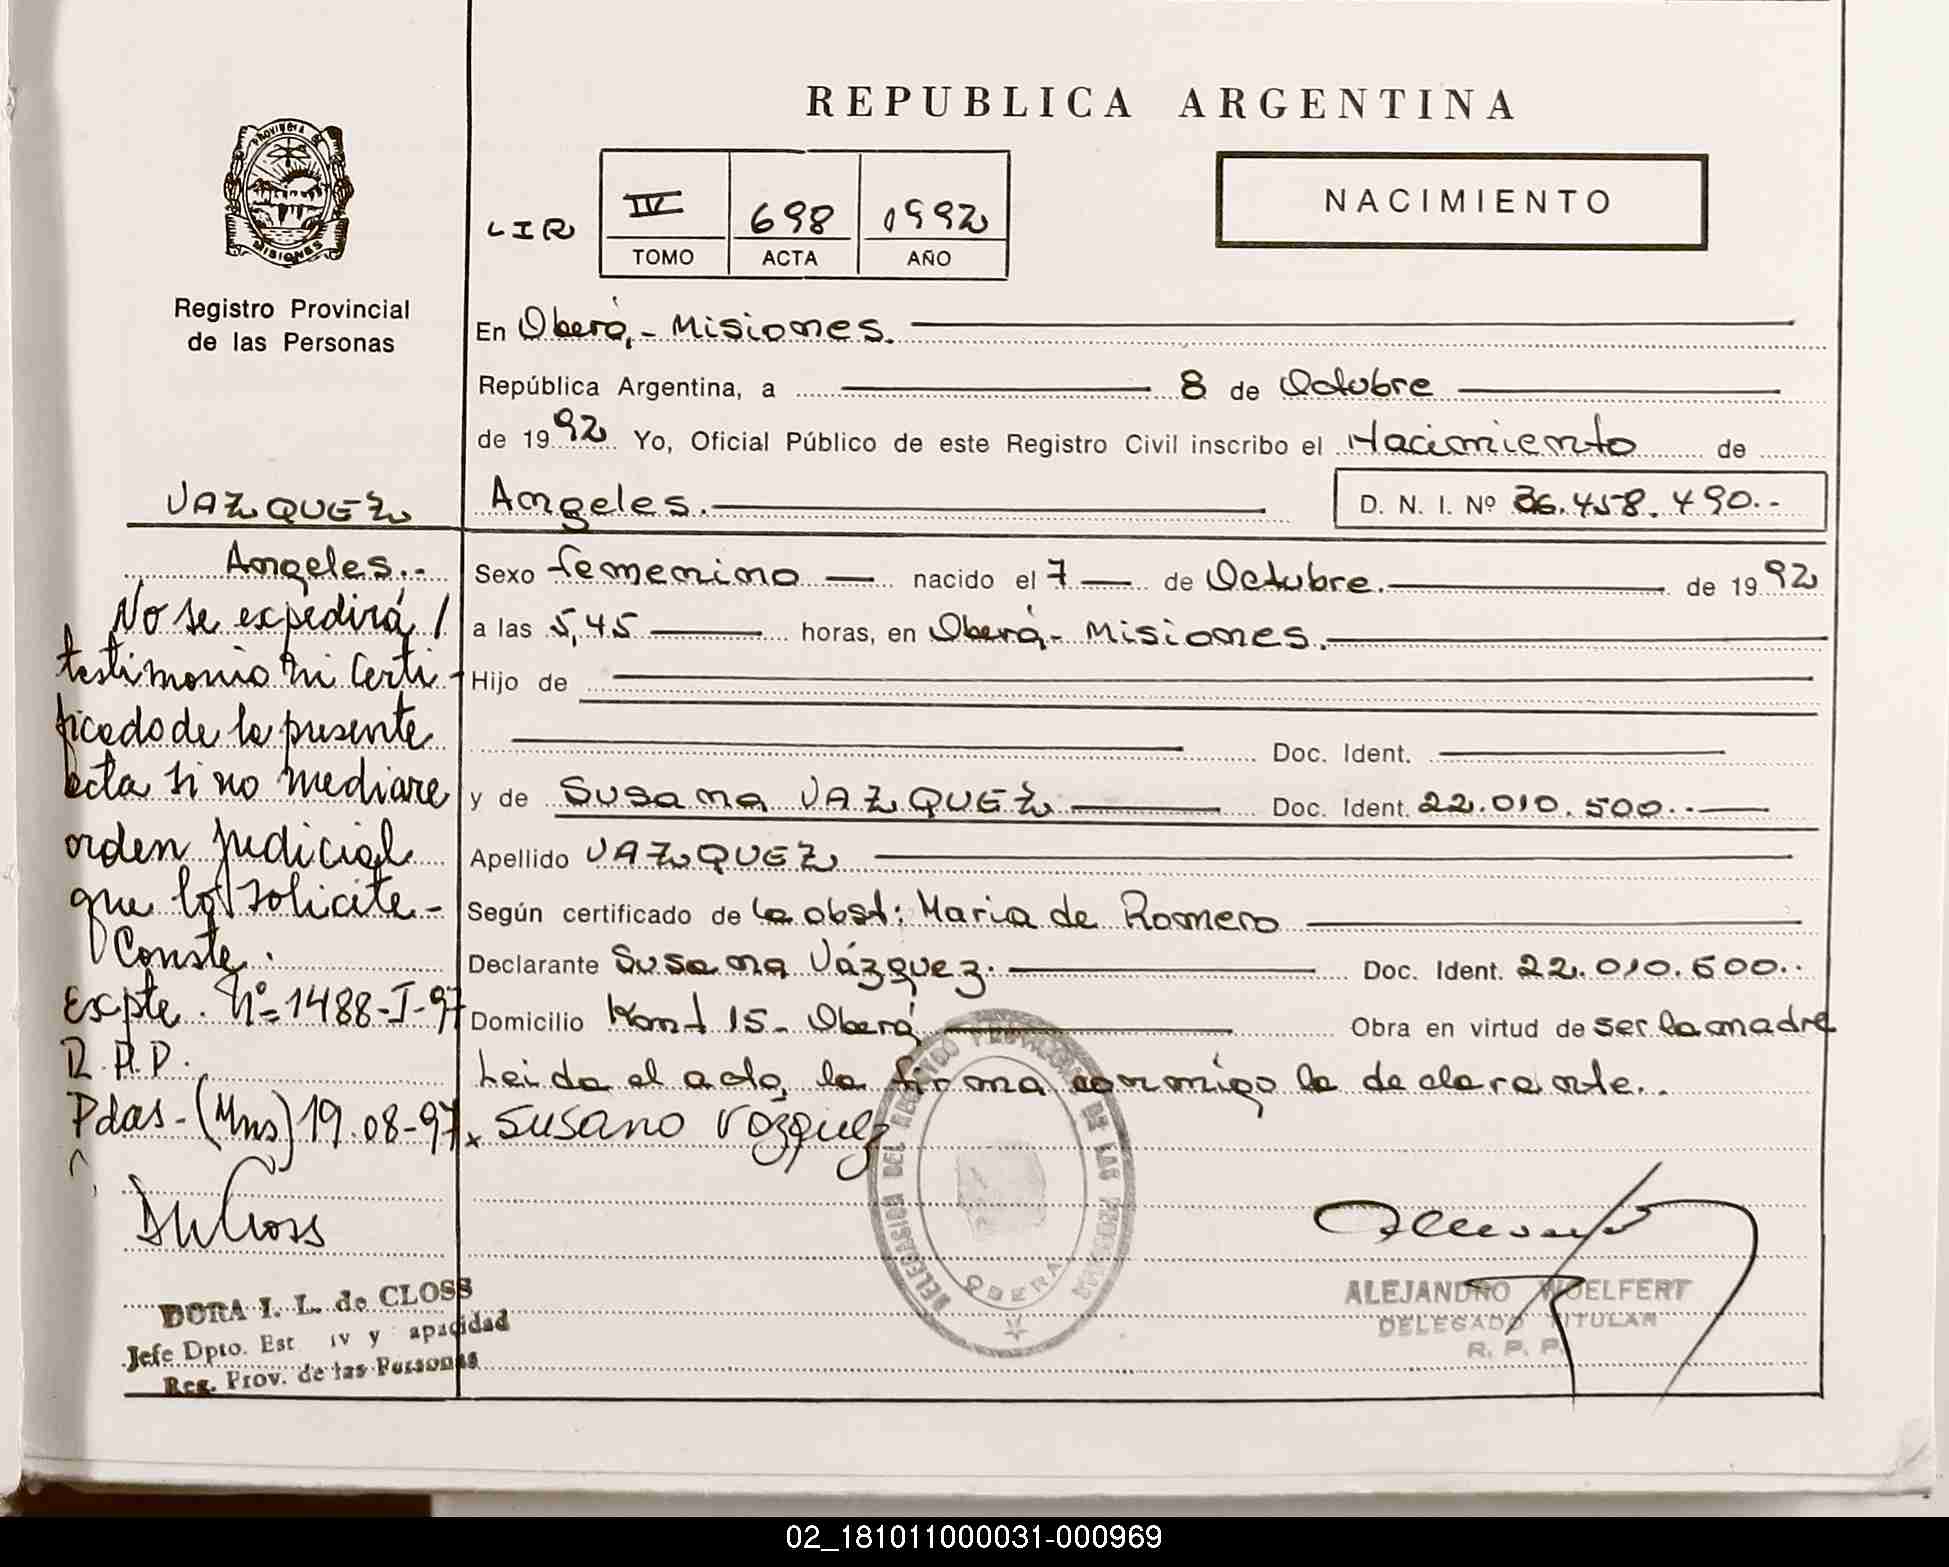 REPUBLICA ARGENTINA
PROVINCIA DE
MISIONES
Registro Provincial
de las Personas
LIR
IV 698 1992
TOMO ACTA AÑO
NACIMIENTO
En Oberá,- Misiones.
República Argentina, a 8 de Octubre
de 1992 Yo, Oficial Público de este Registro Civil inscribo el Nacimiento de
Angeles. D. N. I. Nº 36.458.490.-
Sexo femenino nacido el 7 de Octubre. de 1992
a las 5,45 horas, en Oberá- Misiones.
Hijo de
Doc. Ident.
y de Susana VAZQUEZ Doc. Ident. 22.010.500.-
Apellido VAZQUEZ
Según certificado de la obst: Maria de Romero
Declarante Susana Vázquez. Doc. Ident. 22.010.500.-
Domicilio Km 15- Oberá Obra en virtud de ser la madre
Leida el acta, la firma conmigo la declarante.
x Susana Vázquez
VAZQUEZ
Angeles.-
No se expedirá /
testimonio ni certi-
ficado de la presente
acta si no mediare
orden judicial
que lo solicite-
Conste.
Expte. Nº 1488-I-97
R.P.P.
Pdas-(Mns) 19.08-97
DORA I. L. de CLOSS
Jefe Dpto. Est iv y apacidad
Reg. Prov. de las Personas
DELEGACION DEL REGISTRO PROVINCIAL DE LAS PERSONAS
OBERA
ALEJANDRO WOELFERT
DELEGADO TITULAR
R. P. P.
02_181011000031-000969